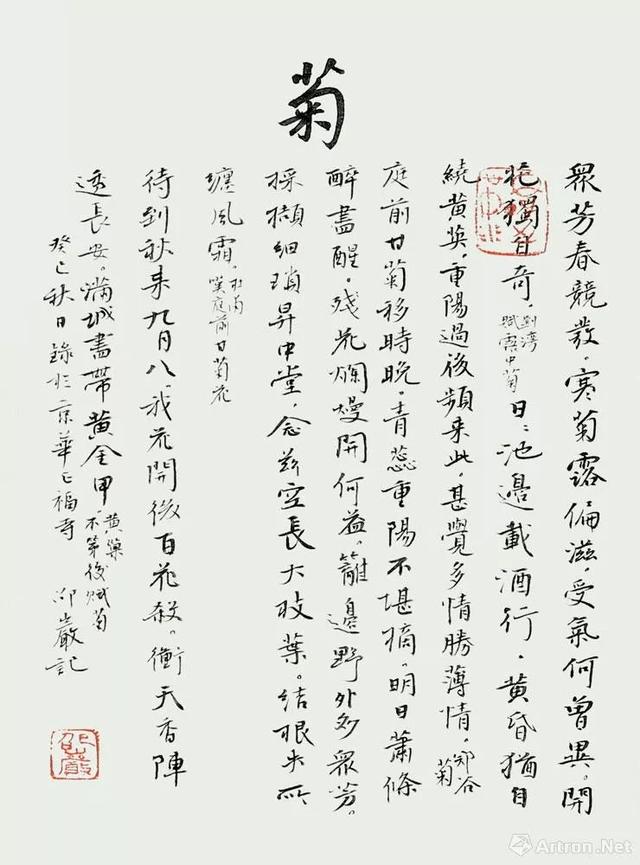 菊
眾芳春競發。寒菊露偏滋。受氣何曾異。開
花獨自奇。劉灣賦露中菊 日:池邊載酒行。黃昏猶自
繞黃英。重陽過後頻來此。甚覺多情勝薄情。鄭谷菊
庭前甘菊移時晚。青蕊重陽不堪摘。明日蕭條
醉盡醒。殘花爛熳開何益。籬邊野外多眾芳。
採擷細瑣昇中堂。念茲空長大枝葉。結根失所
纏風霜。杜甫嘆庭前甘菊花
待到秋來九月八。我花開後百花殺。衝天香陣
透長安。滿城盡帶黃金甲。黃巢不第後賦菊
癸巳秋日錄於京華正福寺 邵巖記
邵巖
Artron.Net